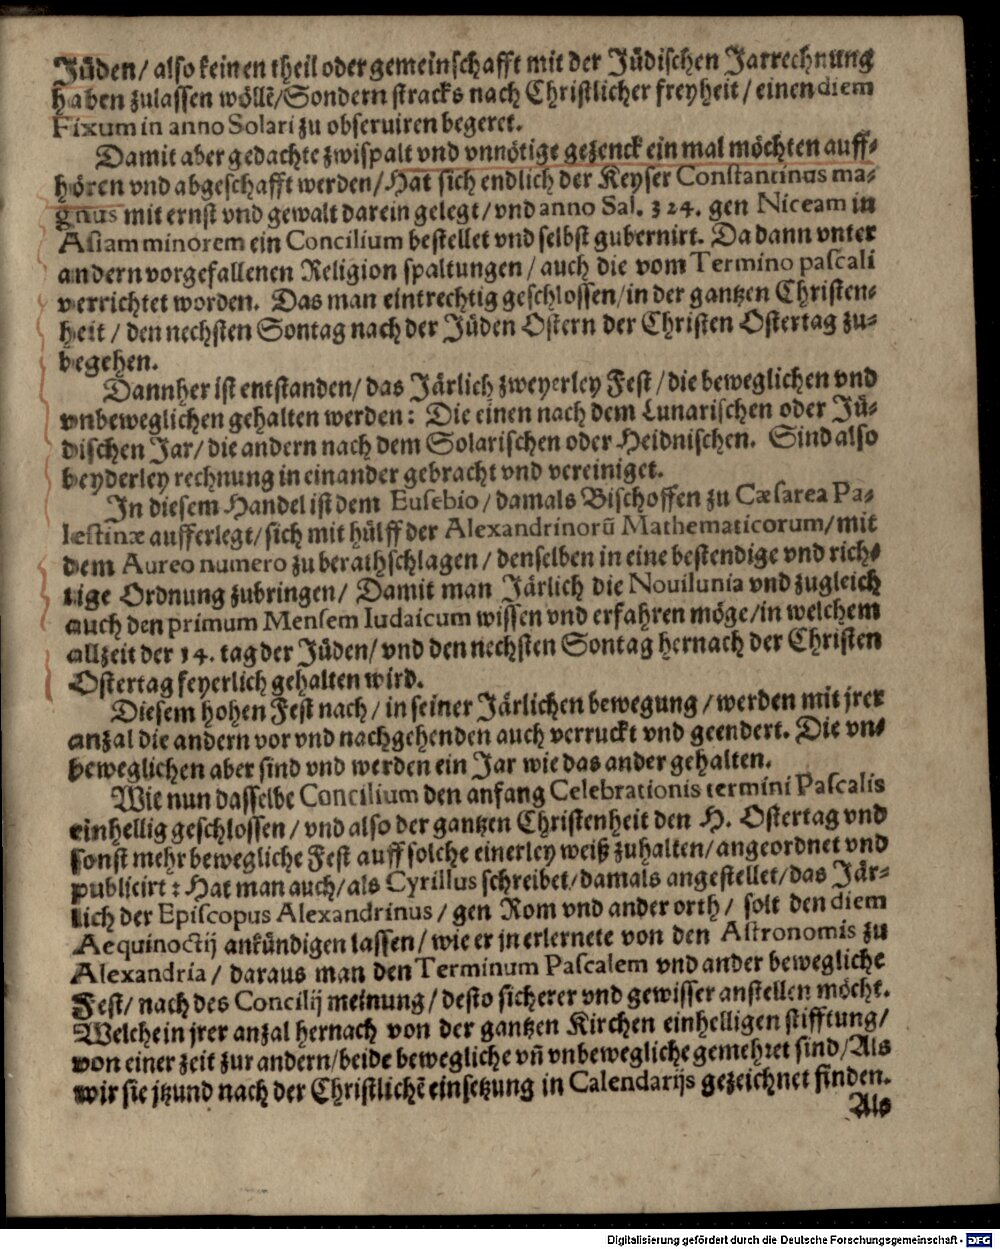 Jüden/ also keinen theil oder gemeinschafft mit der Jüdischen Jarrechnung
haben zulassen wöllẽ/Sondern stracks nach Christlicher freyheit/ einen diem
Fixum in anno Solari zu obseruiren begeret.
Damit aber gedachte zwispalt vnd vnnötige gezenck ein mal möchten auff-
hören vnd abgeschafft werden/Hat sich endlich der Keyser Constantinus ma-
gnus mit ernst vnd gewalt darein gelegt/ vnd anno Sal. 324. gen Niceam in
Asiam minorem ein Concilium bestellet vnd selbst gubernirt. Da dann vnter
andern vorgefallenen Religion spaltungen/ auch die vom Termino pascali
verrichtet worden. Das man eintrechtig geschlossen/in der gantzen Christen-
heit/ den nechsten Sontag nach der Jüden Ostern der Christen Ostertag zu-
begehen.
Dannher ist entstanden/ das Järlich zweyerley Fest/ die beweglichen vnd
vnbeweglichen gehalten werden: Die einen nach dem Lunarischen oder Jü-
dischen Jar/ die andern nach dem Solarischen oder Heidnischen. Sind also
beyderley rechnung in einander gebracht vnd vereiniget.
In diesem Handel ist dem Eusebio/ damals Bischoffen zu Cæsarea Pa-
læstinæ aufferlegt/ sich mit hülff der Alexandrinorũ Mathematicorum/ mit
dem Aureo numero zu berathschlagen/ denselben in eine bestendige vnd rich-
tige Ordnung zubringen/ Damit man Järlich die Nouilunia vnd zugleich
auch den primum Mensem Iudaicum wissen vnd erfahren möge/in welchem
allzeit der 14. tag der Jüden/ vnd den nechsten Sontag hernach der Christen
Ostertag feyerlich gehalten wird.
Diesem hohen Fest nach/ in seiner Järlichen bewegung/ werden mit jrer
anzal die andern vor vnd nachgehenden auch verruckt vnd geendert. Die vn-
beweglichen aber sind vnd werden ein Jar wie das ander gehalten.
Wie nun dasselbe Concilium den anfang Celebrationis termini Pascalis
einhellig geschlossen/ vnd also der gantzen Christenheit den H. Ostertag vnd
sonst mehr bewegliche Fest auff solche einerley weiß zuhalten/ angeordnet vnd
publicirt: Hat man auch/ als Cyrillus schreibet/ damals angestellet/ das Jär-
lich der Episcopus Alexandrinus/ gen Rom vnd ander orth/ solt den diem
Aequinoctij ankündigen lassen/ wie er jn erlernete von den Astronomis zu
Alexandria/ daraus man den Terminum Pascalem vnd ander bewegliche
Fest/ nach des Concilij meinung/ desto sicherer vnd gewisser anstellen möcht.
Welche in jrer anzal hernach von der gantzen Kirchen einhelligen stifftung/
von einer zeit zur andern/beide bewegliche vñ vnbewegliche gemehret sind/Als
wir sie jtzund nach der Christlichẽ einsetzung in Calendarijs gezeichnet finden.
Als
Digitalisierung gefördert durch die Deutsche Forschungsgemeinschaft - DFG